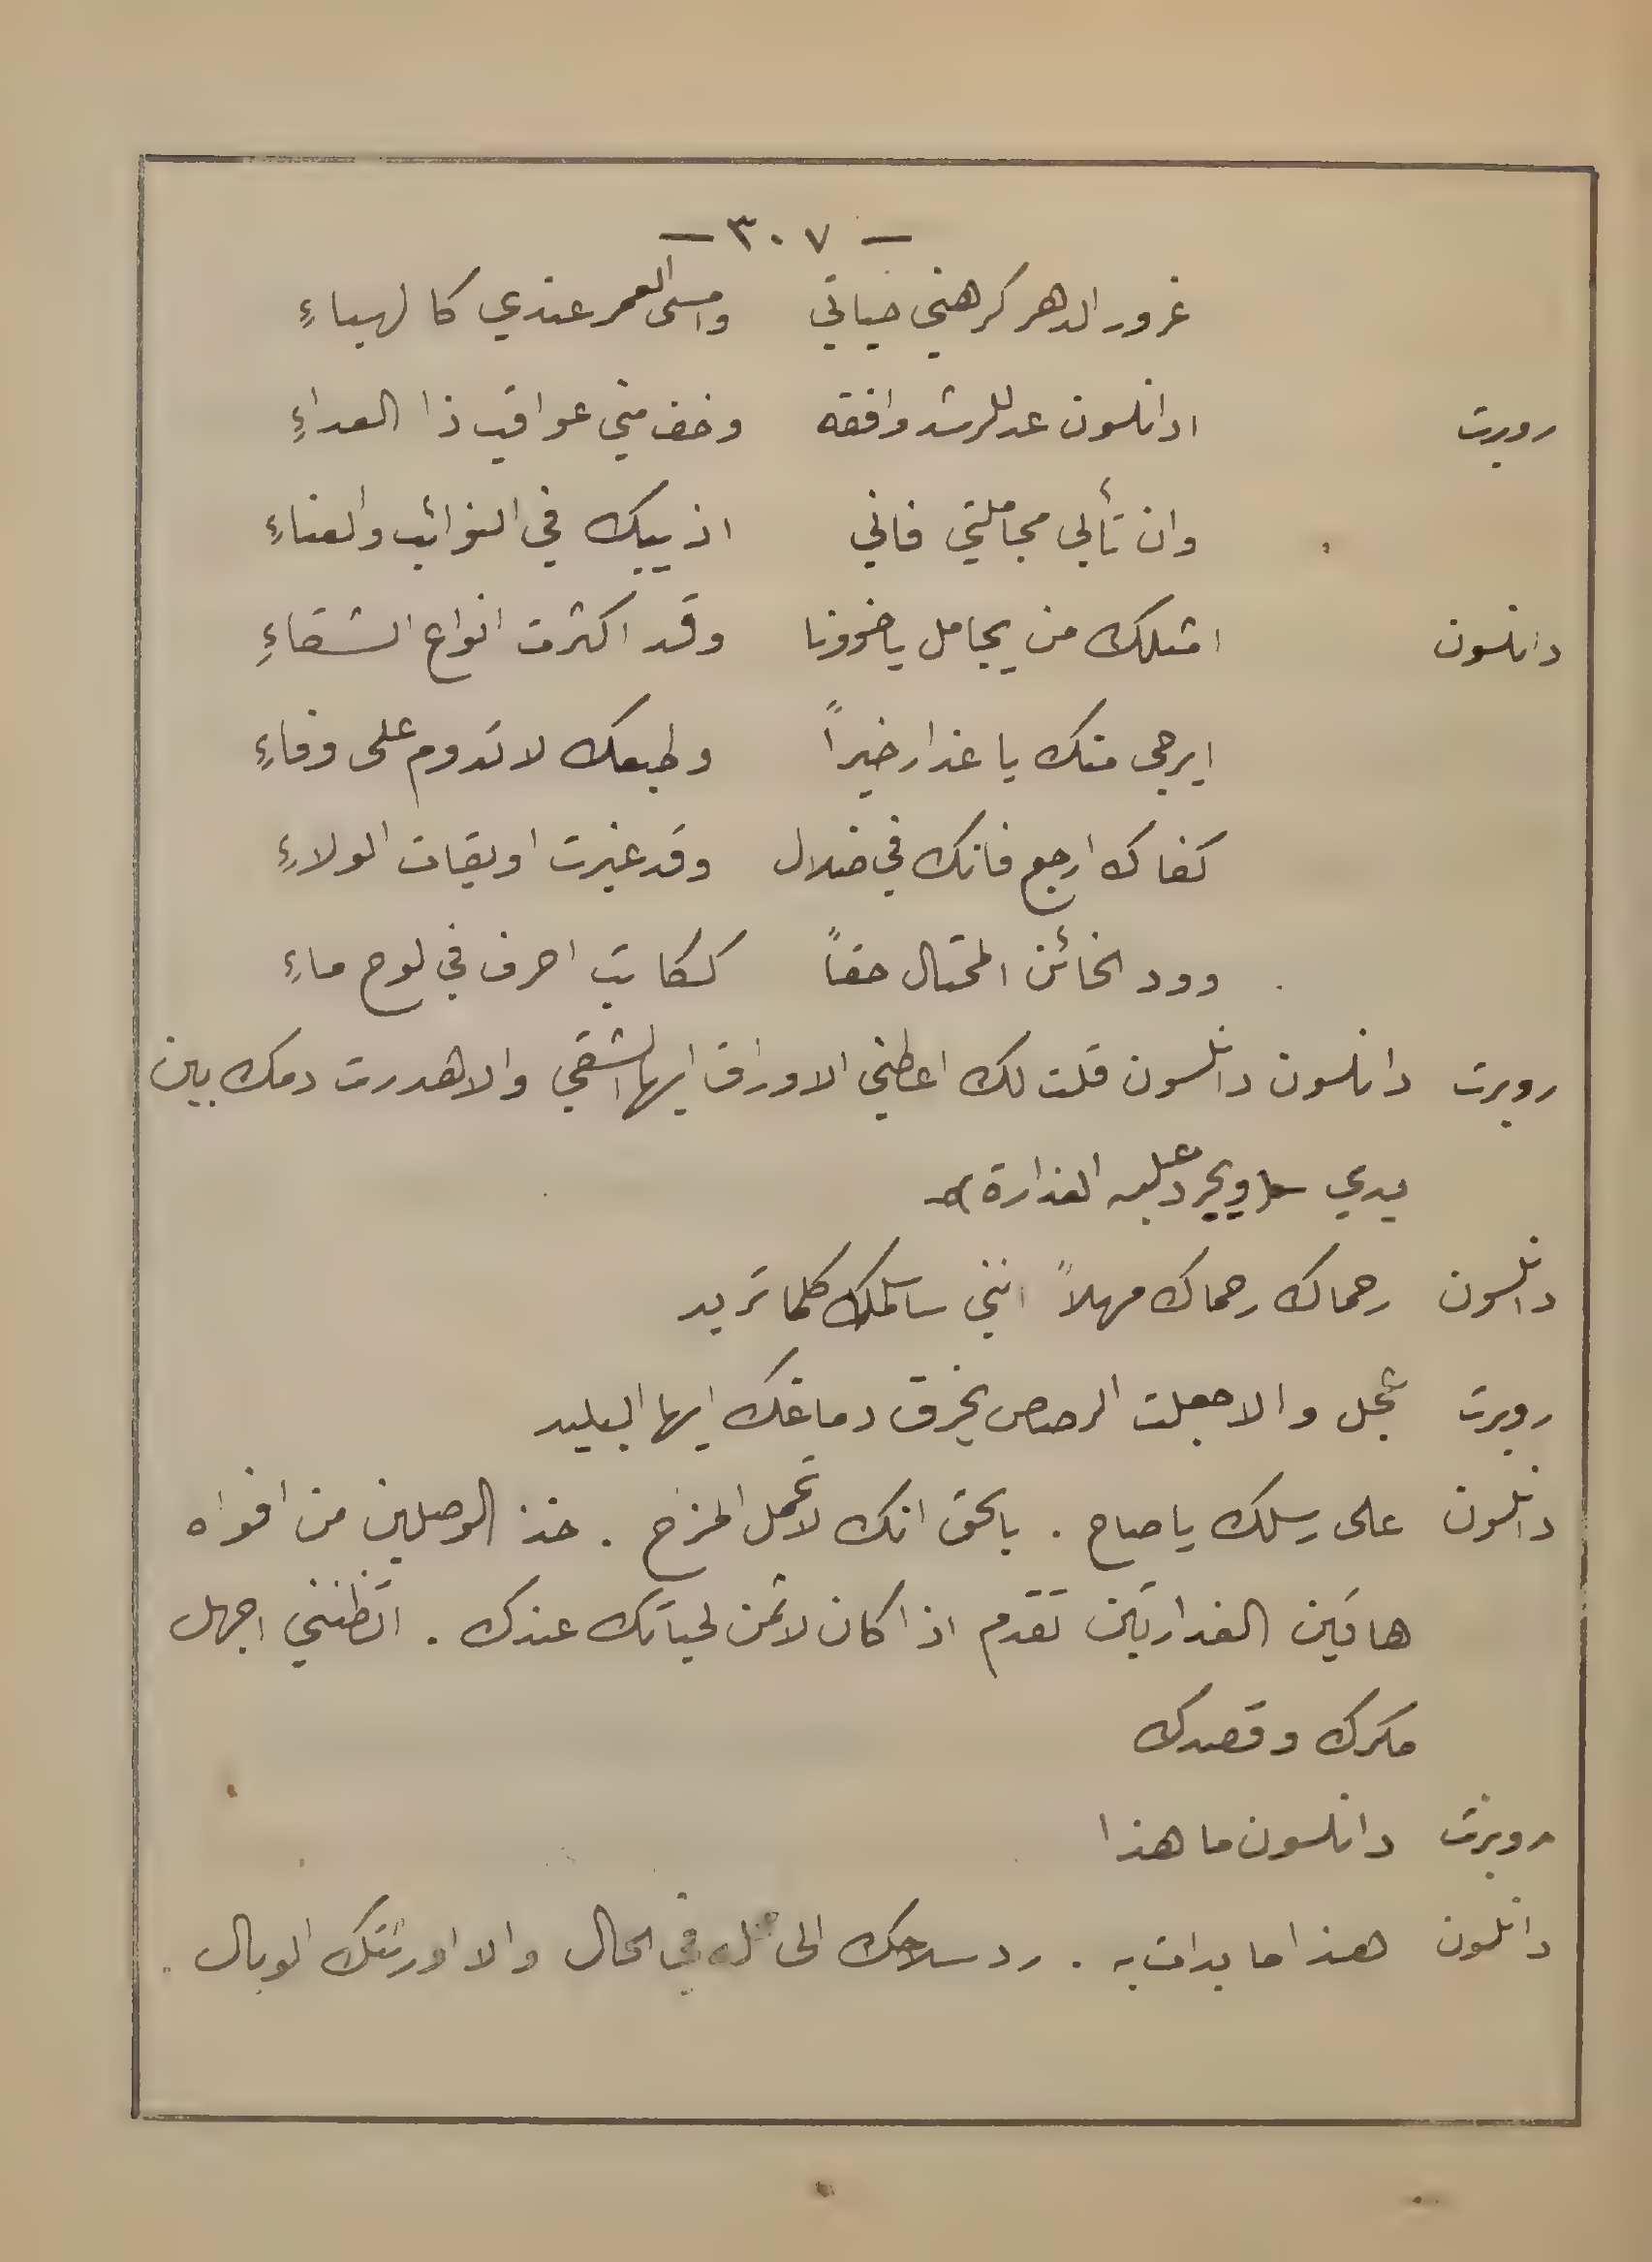 — ٣٠٧ —
غرور الدهر كرهني حياتي وامسى العمر عندي كالهباءِ
روبرت ادانلسون عد للرشد وافقه وخف مني عواقب ذا العداءِ
وان تأبى مجاملتي فاني اذيبك في النوائب والعناءِ
دانلسون امثلك من يجامل ياخؤونا وقد اكثرت انواع الشقاءِ
ايرجى منك يا غدار خيراً وطبعك لا تدوم على وفاءِ
كفاك ارجع فانك في ضلال وقد غيرت اويقات الولاءِ
وود الخائن المحتال حقاً ككاتب احرف في لوح ماءِ
روبرت دانلسون دانلسون قلت لك اعطني الاوراق ايها الشقي والا هدرت دمك بين
يدي (ويجرد عليه الغدارة)
دانلسون رحماك رحماك مهلاً انني ساسلمك كلما تريد
روبرت عجل والا جعلت الرصاص يخرق دماغك ايها البليد
دانلسون على رسلك يا صاح . بالحق انك لا تحمل المزح . خذ الوصلين من افواه
هاتين الغدارتين تقدم اذا كان لا ثمن لحياتك عندك . اتظنني اجهل
مكرك وقصدك
روبرت دانلسون ما هذا
دانلسون هذا ما بدات به . رد سلاحك الى في الحال والا اورثتك الوبال .